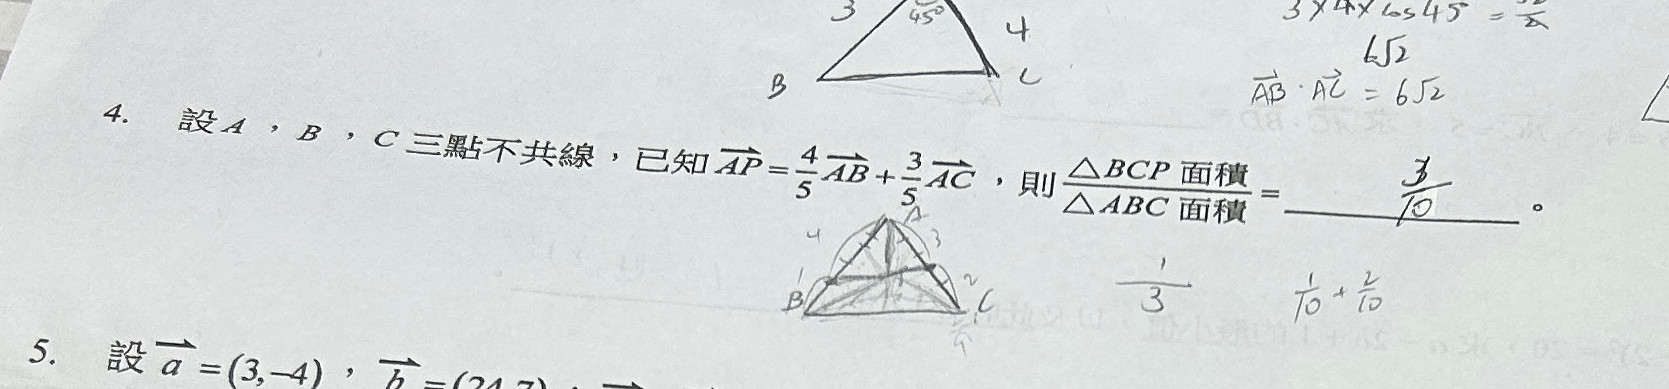 3 45° 4 3×4×cos45° =
6√2
B C AB · AC = 6√2
4. 設A，B，C三點不共線，已知 AP = 4/5 AB + 3/5 AC，則 △BCP 面積 / △ABC 面積 = 3/10 。
A
4 3
1 2 1/3 1/10 + 2/10
B C
5. 設 a = (3,−4)，b = (24,7)